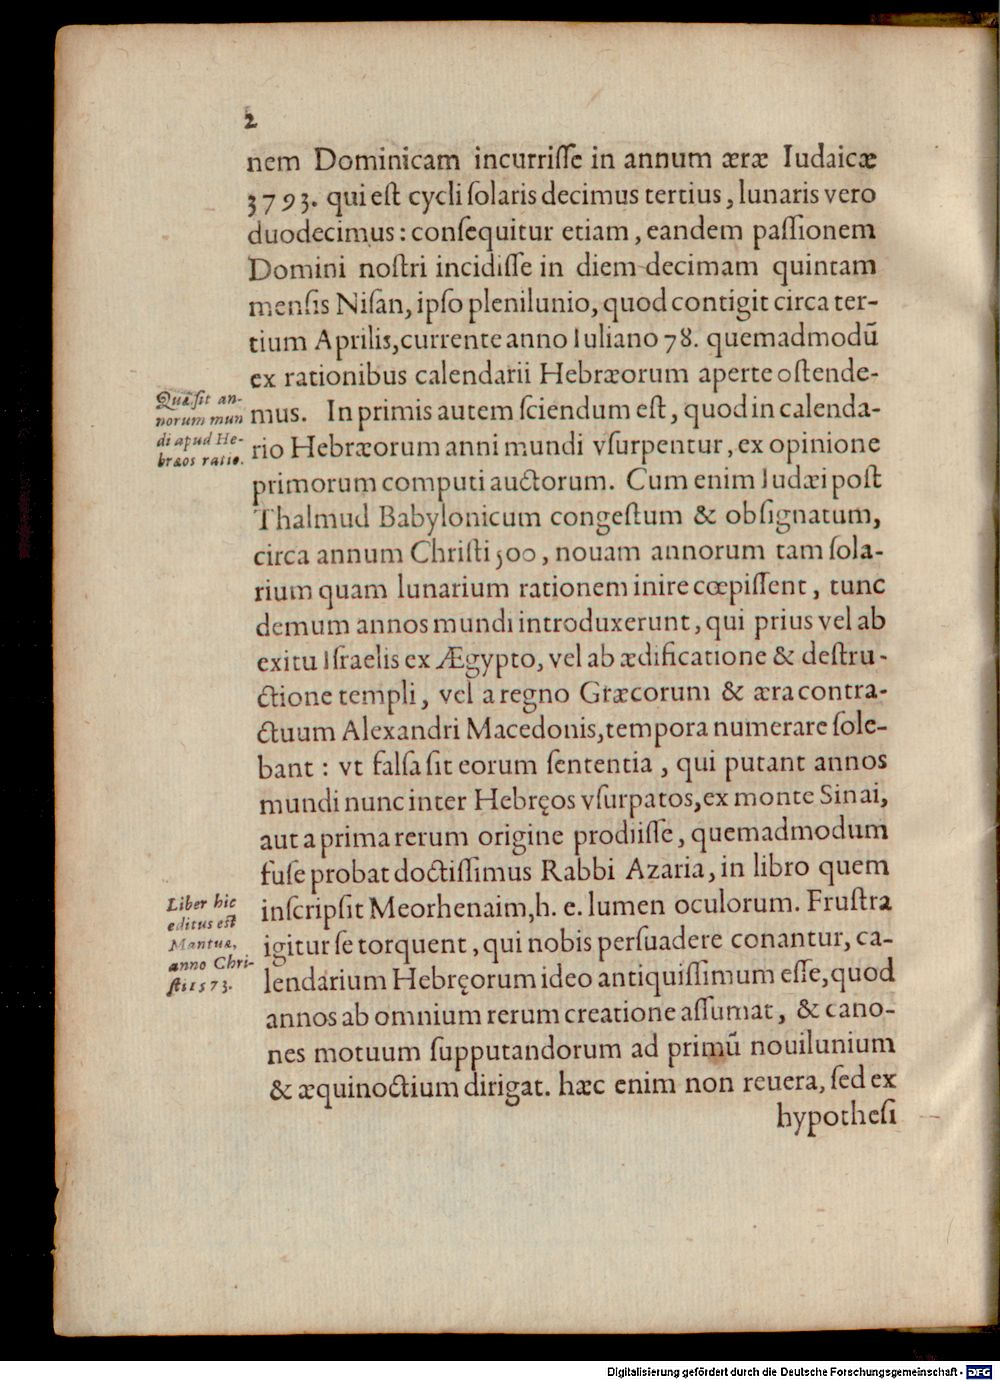 2
nem Dominicam incurriſſe in annum æræ Iudaicæ
3793. qui eſt cycli ſolaris decimus tertius, lunaris vero
duodecimus: conſequitur etiam, eandem paſſionem
Domini noſtri incidiſſe in diem decimam quintam
menſis Niſan, ipſo plenilunio, quod contigit circa ter-
tium Aprilis, currente anno Iuliano 78. quemadmodũ
ex rationibus calendarii Hebræorum aperte oſtende-
Quæ ſit an-
norum mun
di apud He-
bræos ratio.
mus. In primis autem ſciendum eſt, quod in calenda-
rio Hebræorum anni mundi vſurpentur, ex opinione
primorum computi auctorum. Cum enim Iudæi poſt
Thalmud Babylonicum congeſtum & obſignatum,
circa annum Chriſti 500, nouam annorum tam ſola-
rium quam lunarium rationem inire cœpiſſent, tunc
demum annos mundi introduxerunt, qui prius vel ab
exitu Iſraelis ex Ægypto, vel ab ædificatione & deſtru-
ctione templi, vel a regno Græcorum & æra contra-
ctuum Alexandri Macedonis, tempora numerare ſole-
bant: vt falſa ſit eorum ſententia, qui putant annos
mundi nunc inter Hebręos vſurpatos, ex monte Sinai,
aut a prima rerum origine prodiiſſe, quemadmodum
fuſe probat doctiſſimus Rabbi Azaria, in libro quem
Liber hic
editus eſt
Mantuæ,
anno Chri-
ſti 1573.
inſcripſit Meorhenaim, h. e. lumen oculorum. Fruſtra
igitur ſe torquent, qui nobis perſuadere conantur, ca-
lendarium Hebręorum ideo antiquiſſimum eſſe, quod
annos ab omnium rerum creatione aſſumat, & cano-
nes motuum ſupputandorum ad primũ nouilunium
& æquinoctium dirigat. hæc enim non reuera, ſed ex
hypotheſi
Digitalisierung gefördert durch die Deutsche Forschungsgemeinschaft - DFG